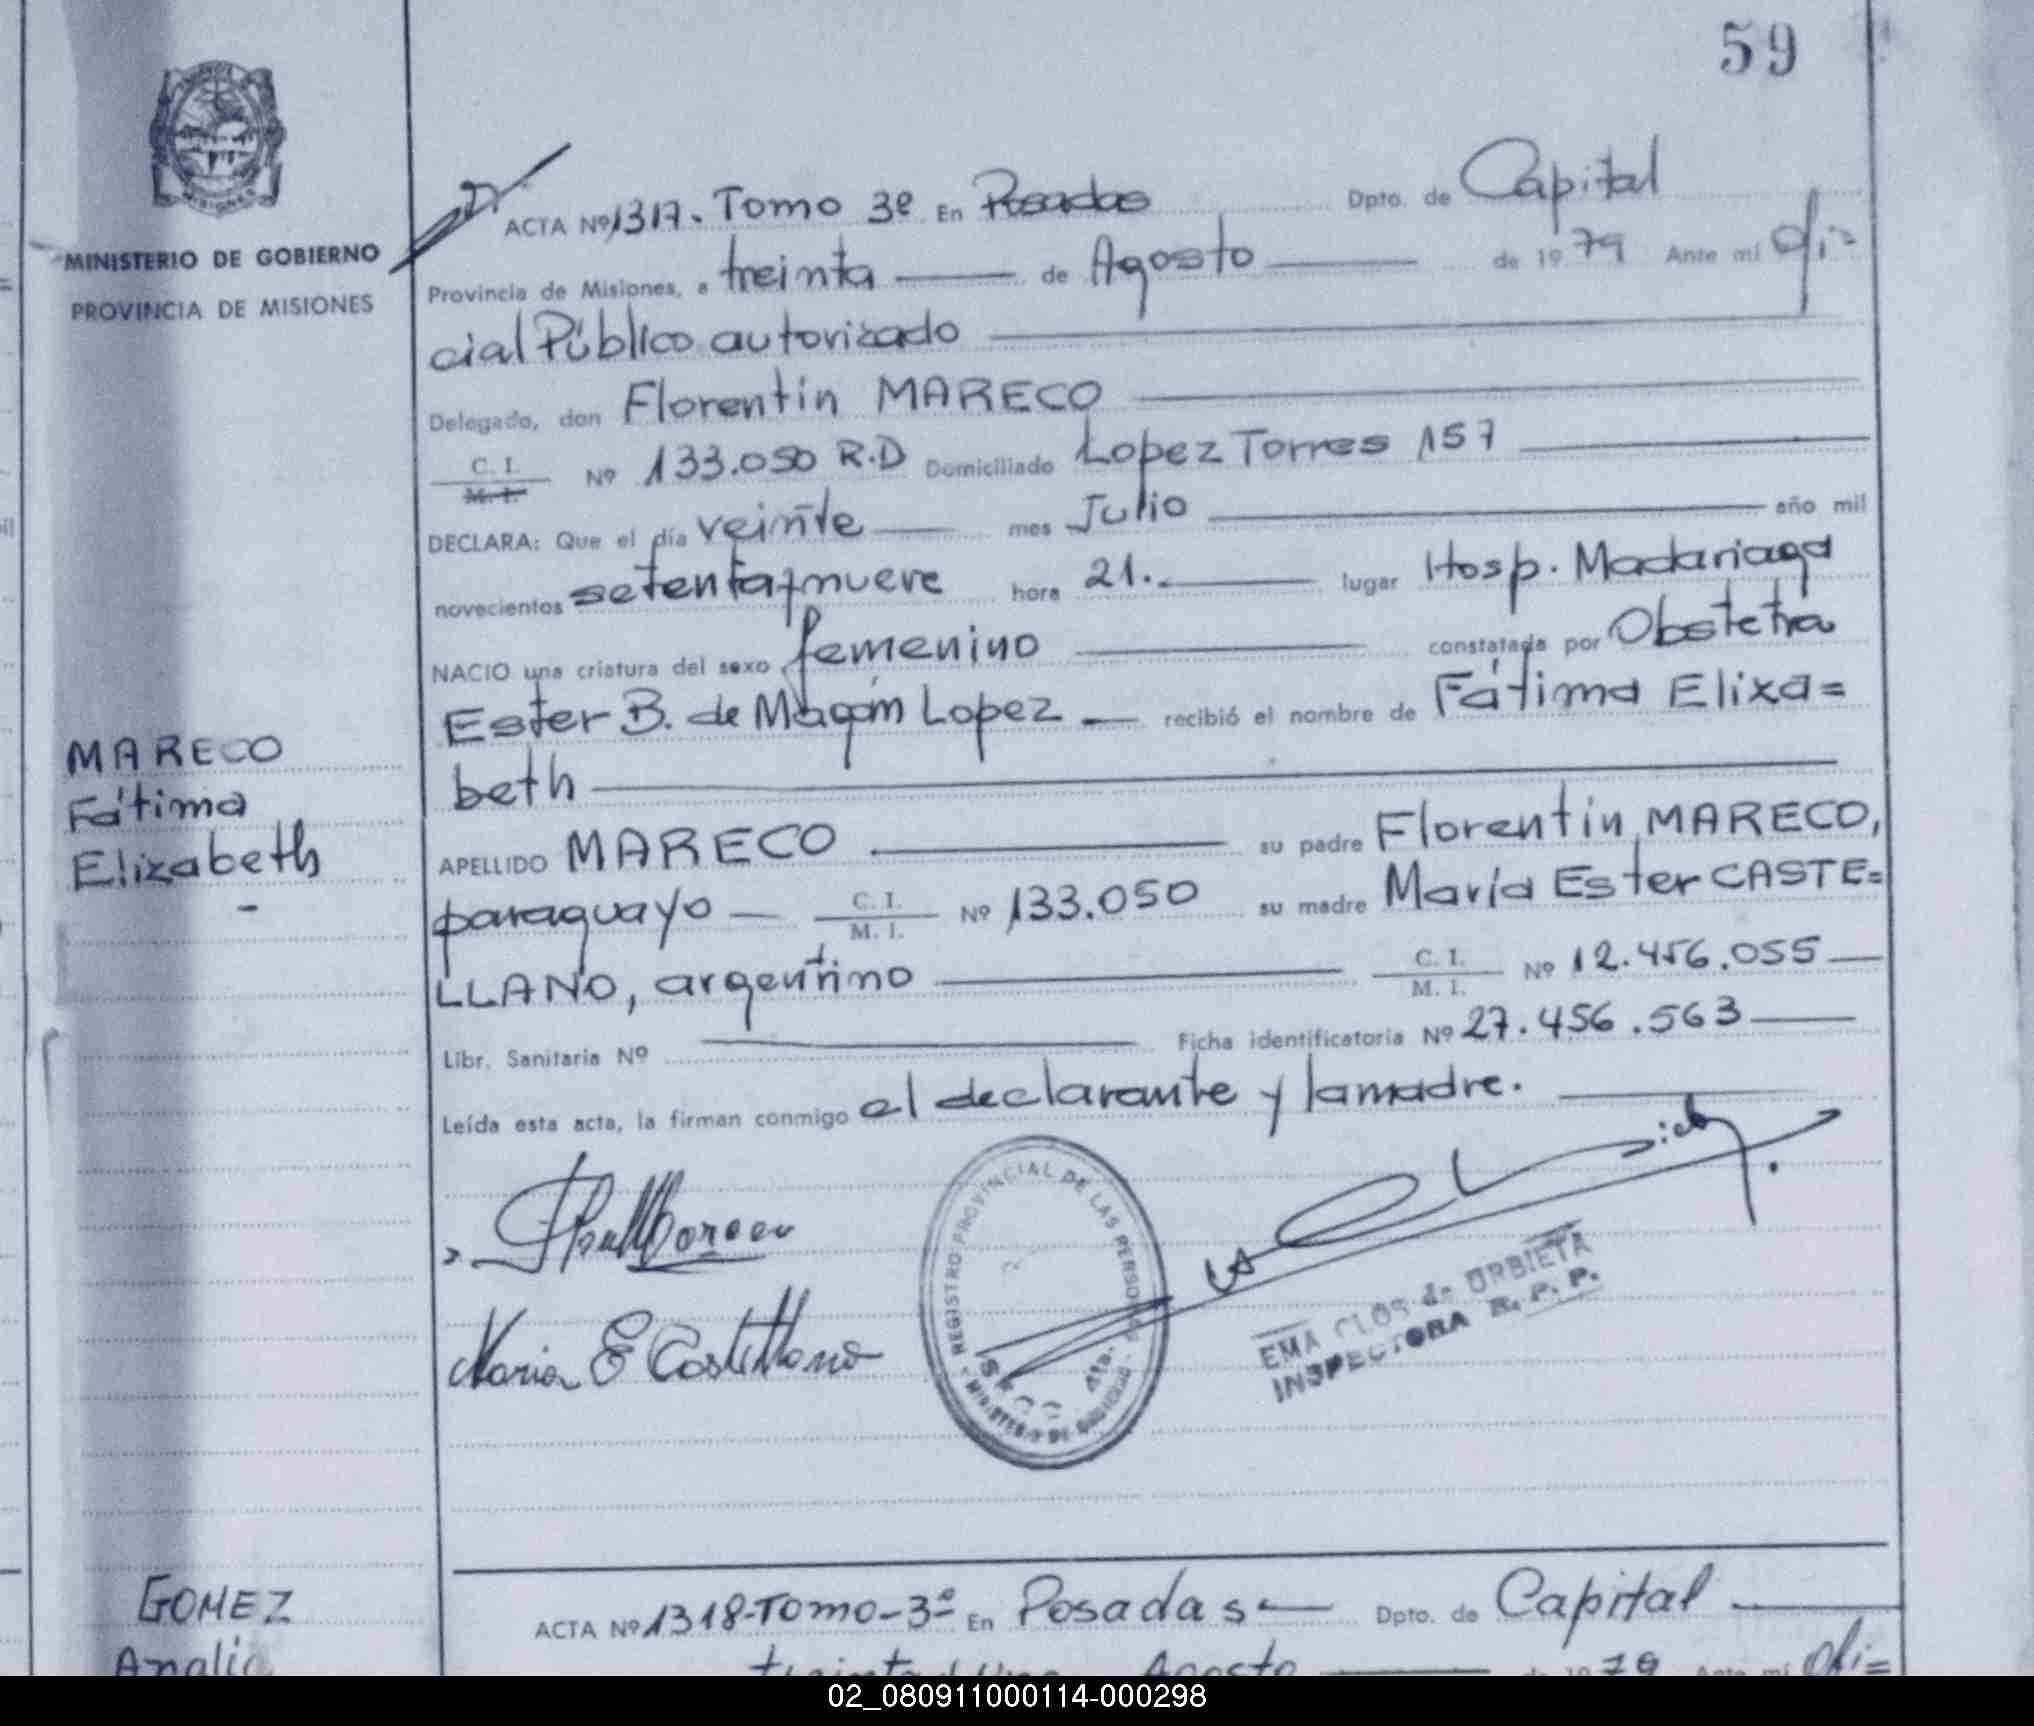 59
MINISTERIO DE GOBIERNO
PROVINCIA DE MISIONES
ACTA Nº 1317. Tomo 3º En Posadas Dpto. de Capital
Provincia de Misiones, a treinta de Agosto de 1979 Ante mi ofi=
cial Público autorizado
Delegado, don Florentín MARECO
C. I.
M. I.
Nº 133.050 R.D Domiciliado Lopez Torres 157
DECLARA: Que el día veinte mes Julio año mil
novecientos setenta y nueve hora 21.- lugar Hosp. Madariaga
NACIO una criatura del sexo femenino constatada por Obstetra
Ester B. de Magám Lopez recibió el nombre de Fátima Eliza=
beth
MARECO
Fátima
Elizabeth
-
APELLIDO MARECO su padre Florentín MARECO,
paraguayo C. I. M. I. Nº 133.050 su madre María Ester CASTE=
LLANO, argentino C. I. M. I. Nº 12.456.055
Libr. Sanitaria Nº Ficha identificatoria Nº 27.456.563
Leída esta acta, la firman conmigo el declarante y la madre.
Maria E Castellano
REGISTRO PROVINCIAL DE LAS PERSONAS
MINISTERIO DE GOBIERNO
EMA CLOS de URBIETA
INSPECTORA R. P. P.
GOMEZ
Analia
ACTA Nº 1318-Tomo-3º En Posadas Dpto. de Capital
treinta y uno Agosto de 1979 Ante mi ofi=
02_080911000114-000298